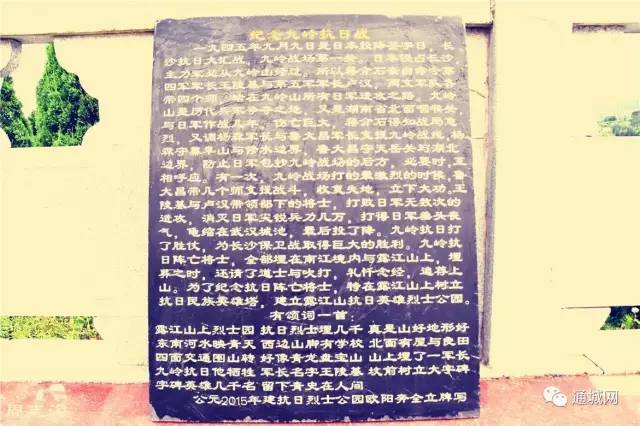 纪念九岭抗日战
一九四五年九月九日是日本投降签字日，长
沙抗日大汇战，九岭战场第一关。日本强占长沙
主力军必从九岭山经过，所以蒋介石
四军军长王陵基与第五军军长卢汉，两军长
带四个师，站在九岭山所有日军进攻之路，九岭
山是历代兵家必争之地，又是湖南省北面咽喉关
与日军作战几年，伤亡巨大，蒋介石得知战局危
烈，又调杨森军长与鲁大昌军长支援九岭战地，杨
森守幕阜山与修水边界，鲁大昌守天岳关与湖北
边界，防止日军包抄九岭战场的后方，必要时，互
相呼应。有一次，九岭战场打的最激烈的时候，鲁
大昌带几个师支援战斗，收复失地，立下大功。王
陵基与卢汉带领部下的将士，打败日军无数次的
进攻，消灭日军尖锐兵力几万，打得日军垂头丧
气，龟缩在武汉城池，最后投了降。九岭抗日打
了胜仗，为长沙保卫战取得巨大的胜利。九岭抗
日阵亡将士，全部埋在南江境内与露江山上，埋
葬之时，还请了道士与吹打，礼忏念经，追荐上
山。为了纪念抗日阵亡将士，特在露江山上树立
抗日民族英雄塔，建立露江山抗日英雄烈士公园。
有颂词一首：
露江山上烈士园 抗日烈士埋几千 真是山好地形好
东南河水映青天 西边山脚有学校 北面有屋与良田
四面交通图山转 好像青龙盘宝山 山上埋了一军长
九岭抗日他牺牲 军长名字王陵基 坟前树立大字碑
字碑英雄几千名 留下青史在人间
公元2015年建抗日烈士公园欧阳奔全立牌写
通城网